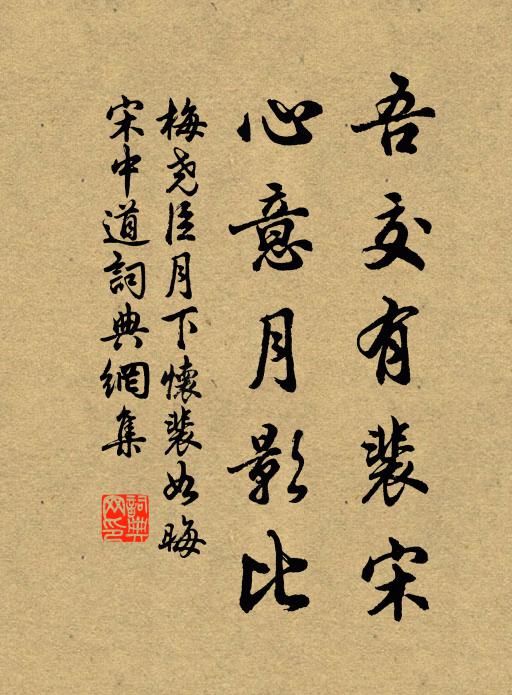 吾交有裴宋
心意月影比
梅尧臣月下懷裴如晦
宋中道詞典網集
詞典
网印